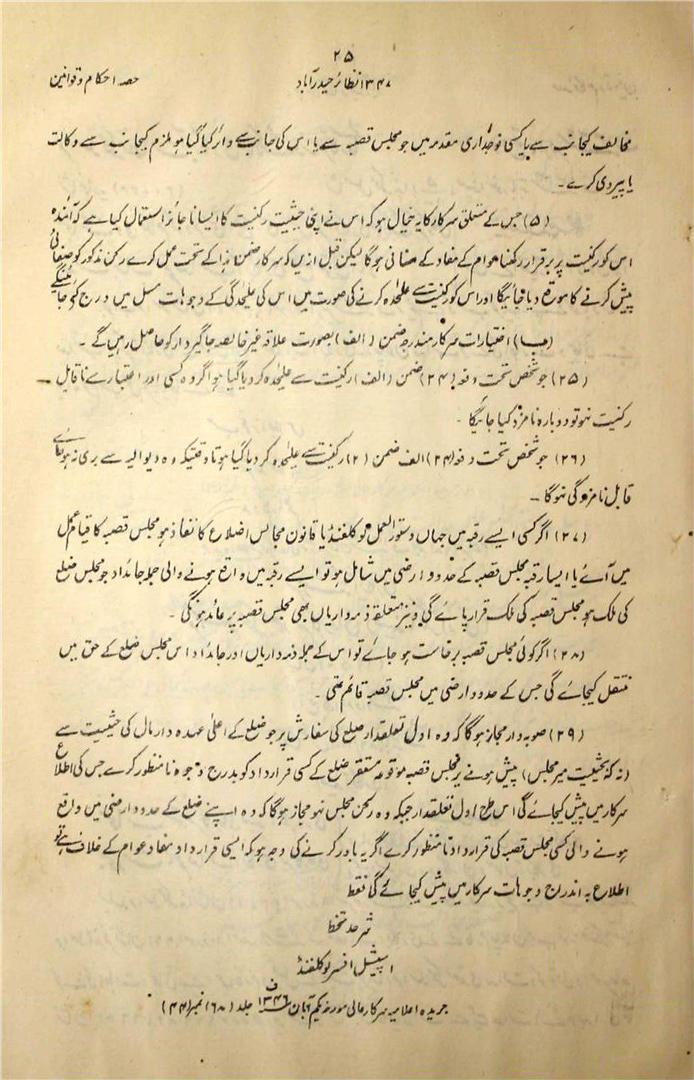 ۲۵
۱۳۴۷ نظائر حیدرآباد
حصہ احکام و قوانین
مخالف کیجانب سے یا کسی فوجداری مقدمہ میں جو مجلس قصبہ سے یا اس کی جانب سے دائر کیا گیا ہو ملزم کیجانب سے وکالت
یا پیروی کرے ۔
(۵) جس کے متعلق سرکار کا یہ خیال ہو کہ اس نے اپنی حیثیت رکنیت کا ایسا ناجائز استعمال کیا ہے کہ آئندہ
اس کو رکنیت پر برقرار رکھنا عوام کے مفاد کے منافی ہوگا لیکن قبل ازیں کہ سرکار ضمن ہذا کے تحت عمل کرے رکن مذکور کو صفائی
پیش کرنے کا موقع دیا جائیگا اور اس کو رکنیت سے علحدہ کرنے کی صورت میں اس کی علحدگی کے وجوہات مسل میں درج کئے جائینگے
(ب) اختیارات سرکار مندرجہ ضمن (الف) بصورت علاقہ غیر خالصہ جاگیردار کو حاصل رہیں گے ۔
(۲۵) جو شخص تحت دفعہ (۲۴) ضمن (الف) رکنیت سے علحدہ کر دیا گیا ہو اگر وہ کسی اور اعتبار سے ناقابل
رکنیت نہو تو دوبارہ نامزد کیا جائیگا ۔
(۲۶) جو شخص تحت دفعہ (۲۴) الف ضمن (۲) رکنیت سے علحدہ کر دیا گیا ہو تا وقتیکہ وہ دیوالیہ سے بری نہ ہو جائے
قابل نامزدگی نہوگا ۔
(۲۷) اگر کسی ایسے رقبہ میں جہاں دستور العمل لوکلفنڈ یا قانون مجالس اضلاع کا نفاذ ہو مجلس قصبہ کا قیام عمل
میں آئے یا ایسا رقبہ مجلس قصبہ کے حدود ارضی میں شامل ہو تو ایسے رقبہ میں واقع ہونے والی جملہ جائداد جو مجلس ضلع
کی ملک ہو مجلس قصبہ کی ملک قرار پائے گی و نیز متعلقہ ذمہ داریاں بھی مجلس قصبہ پر عائد ہونگی ۔
(۲۸) اگر کوئی مجلس قصبہ برخاست ہو جائے تو اس کے جملہ ذمہ داریاں اور جائداد اس مجلس ضلع کے حق میں
منتقل کیجائے گی جس کے حدود ارضی میں مجلس قصبہ قائم تھی ۔
(۲۹) صوبہ دار مجاز ہوگا کہ وہ اول تعلقدار ضلع کی سفارش پر جو ضلع کے اعلی عہدہ دار مال کی حیثیت سے
(نہ کہ بحیثیت میر مجلس) پیش ہونے پر مجلس قصبہ موقوعہ مستقر ضلع کے کسی قرارداد کو بدرج وجوہ نامنظور کرے جس کی اطلاع
سرکار میں پیش کیجائے گی اس طرح اول تعلقدار جبکہ وہ رکن مجلس نہو مجاز ہوگا کہ وہ اپنے ضلع کے حدود ارضی میں واقع
ہونے والی کسی مجلس قصبہ کی قرارداد نامنظور کرے اگر یہ باور کرنے کی وجہ ہو کہ ایسی قرارداد مفاد عوام کے خلاف ہے تو
اطلاع بہ اندرج وجوہات سرکار میں پیش کیجائے گی فقط
شرحد ستخط
اسپیشل افسر لوکلفنڈ
جریدہ اعلامیہ سرکار عالی مورخہ یکم آبان ۱۳۴۶ ف جلد (۶۸) نمبر (۴۴)